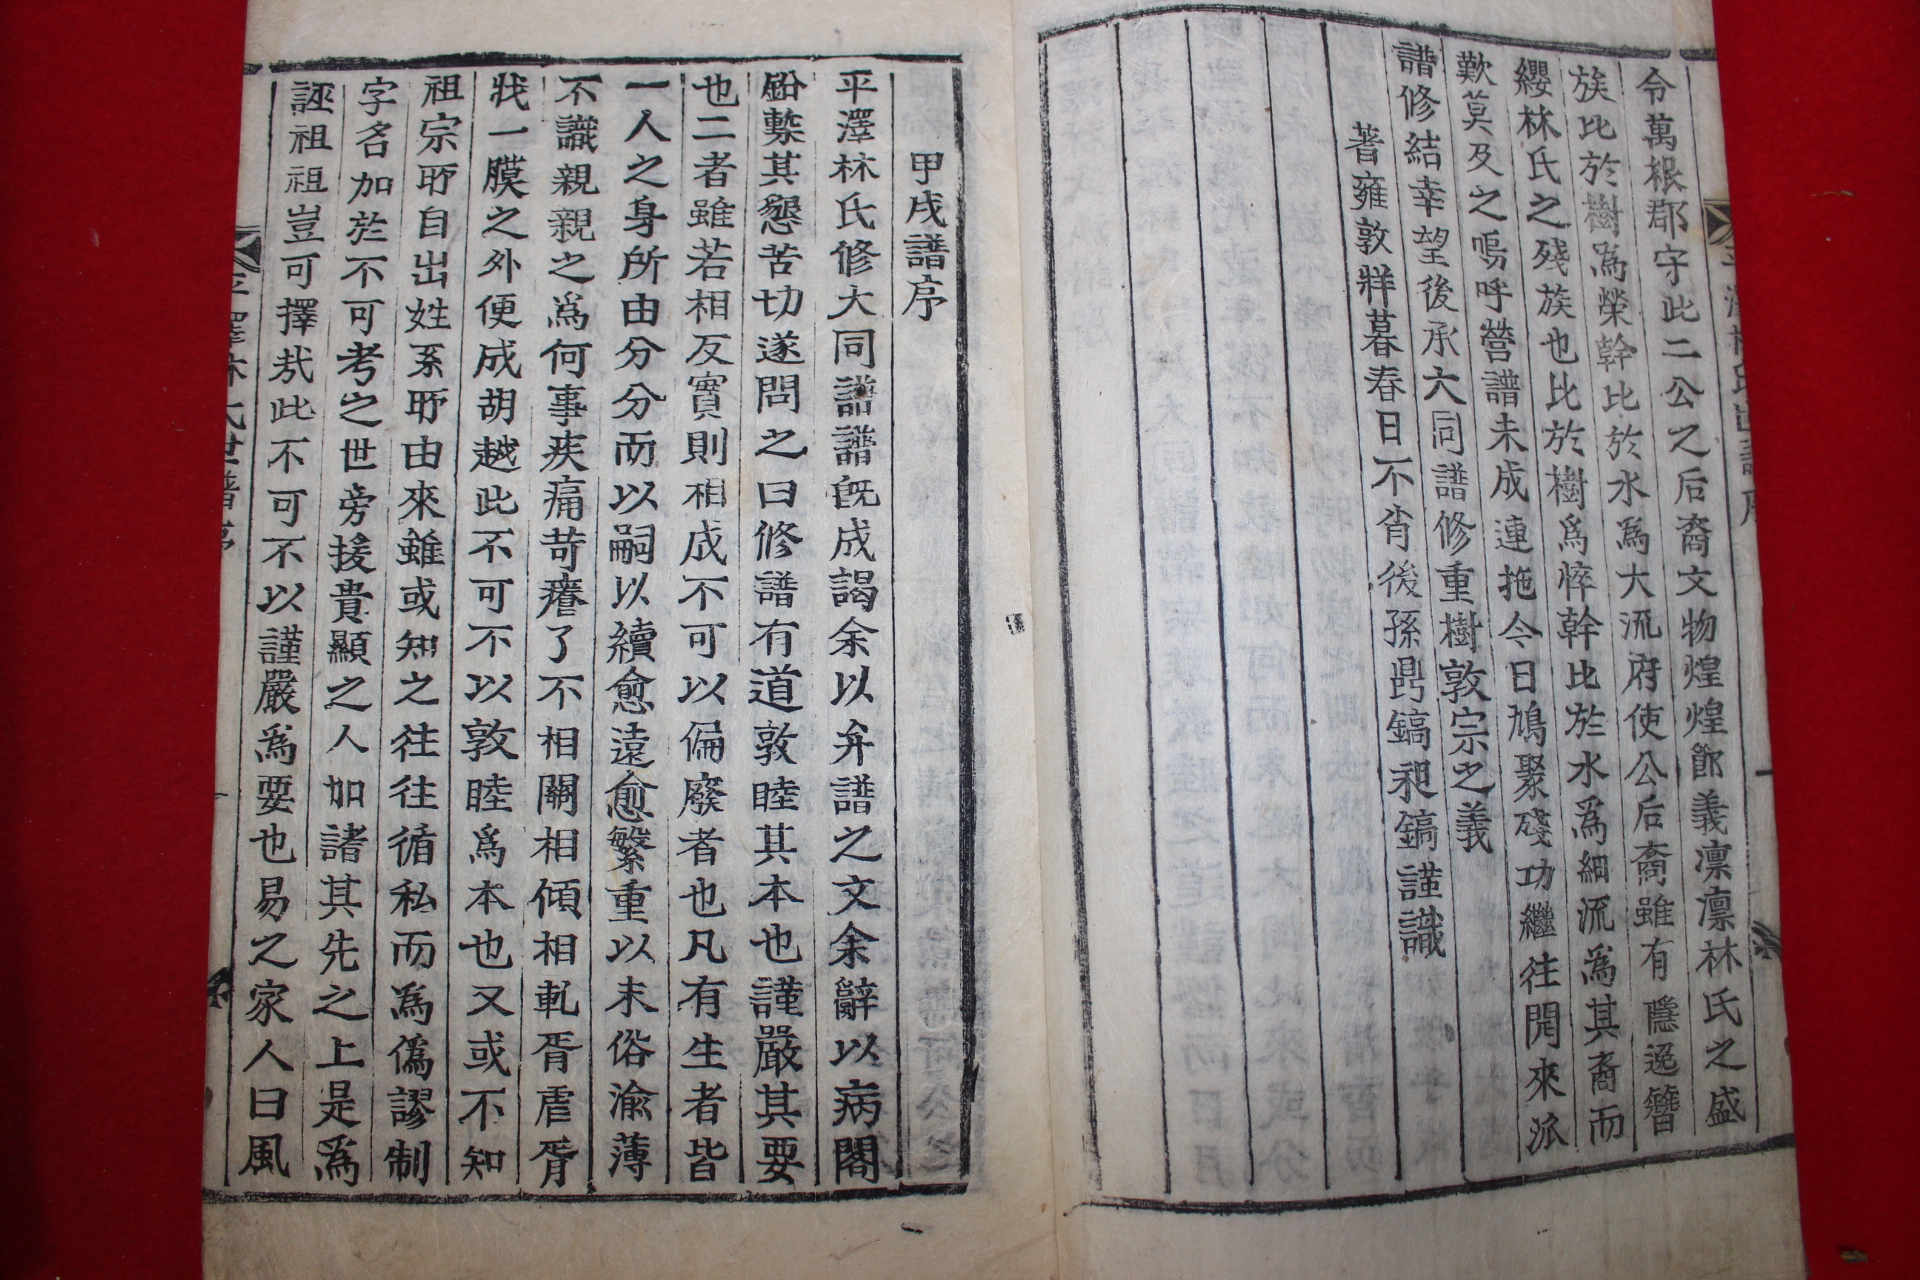 令萬根郡守此二公之后裔文物煌煌節義凛凛林氏之盛
族比於樹爲榮幹比於水爲大流府使公后裔雖有隱逸簪
纓林氏之殘族也比於樹爲悴幹比於水爲細流爲其裔而
歎莫及之嗚呼營譜未成連拖今日鳩聚殘功繼往開來派
譜修結幸望後承大同譜修重樹敦宗之義
著雍敦牂暮春日不肖後孫鎬昶鎬謹識
甲戌譜序
平澤林氏修大同譜譜旣成謁余以弁譜之文余辭以病閣
鉛槧其懇苦切遂問之曰修譜有道敦睦其本也謹嚴其要
也二者雖若相反實則相成不可以偏廢者也凡有生者皆
一人之身所由分分而以嗣以續愈遠愈繁重以末俗渝薄
不識親親之爲何事疾痛苛癢了不相關相傾相軋胥虐胥
戕一膜之外便成胡越此不可不以敦睦爲本也又或不知
祖宗所自出姓系所由來雖或知之往往循私而爲僞謬制
字名加於不可考之世旁援貴顯之人加諸其先之上是爲
誣祖祖豈可擇哉此不可不以謹嚴爲要也易之家人曰風
平澤林氏世譜序